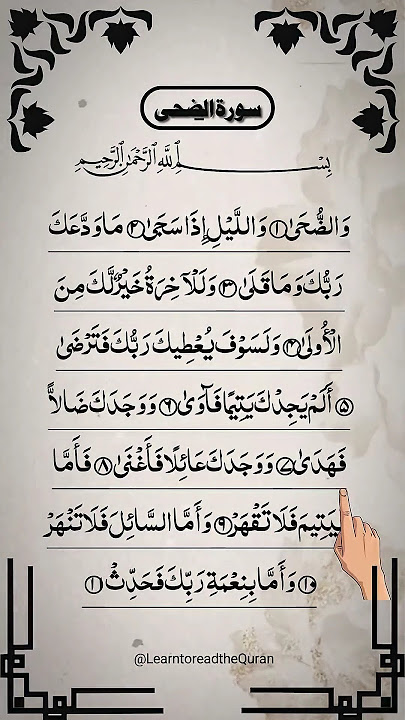 سورة الضحى
بِسْمِ ٱللَّهِ ٱلرَّحْمَٰنِ ٱلرَّحِيمِ
وَالضُّحَىٰ ١ وَاللَّيْلِ إِذَا سَجَىٰ ٢ مَا وَدَّعَكَ
رَبُّكَ وَمَا قَلَىٰ ٣ وَلَلْآخِرَةُ خَيْرٌ لَّكَ مِنَ
الْأُولَىٰ ٤ وَلَسَوْفَ يُعْطِيكَ رَبُّكَ فَتَرْضَىٰ
٥ أَلَمْ يَجِدْكَ يَتِيمًا فَآوَىٰ ٦ وَوَجَدَكَ ضَالًّا
فَهَدَىٰ ٧ وَوَجَدَكَ عَائِلًا فَأَغْنَىٰ ٨ فَأَمَّا
الْيَتِيمَ فَلَا تَقْهَرْ ٩ وَأَمَّا السَّائِلَ فَلَا تَنْهَرْ
١٠ وَأَمَّا بِنِعْمَةِ رَبِّكَ فَحَدِّثْ ١
@LearntoreadtheQuran